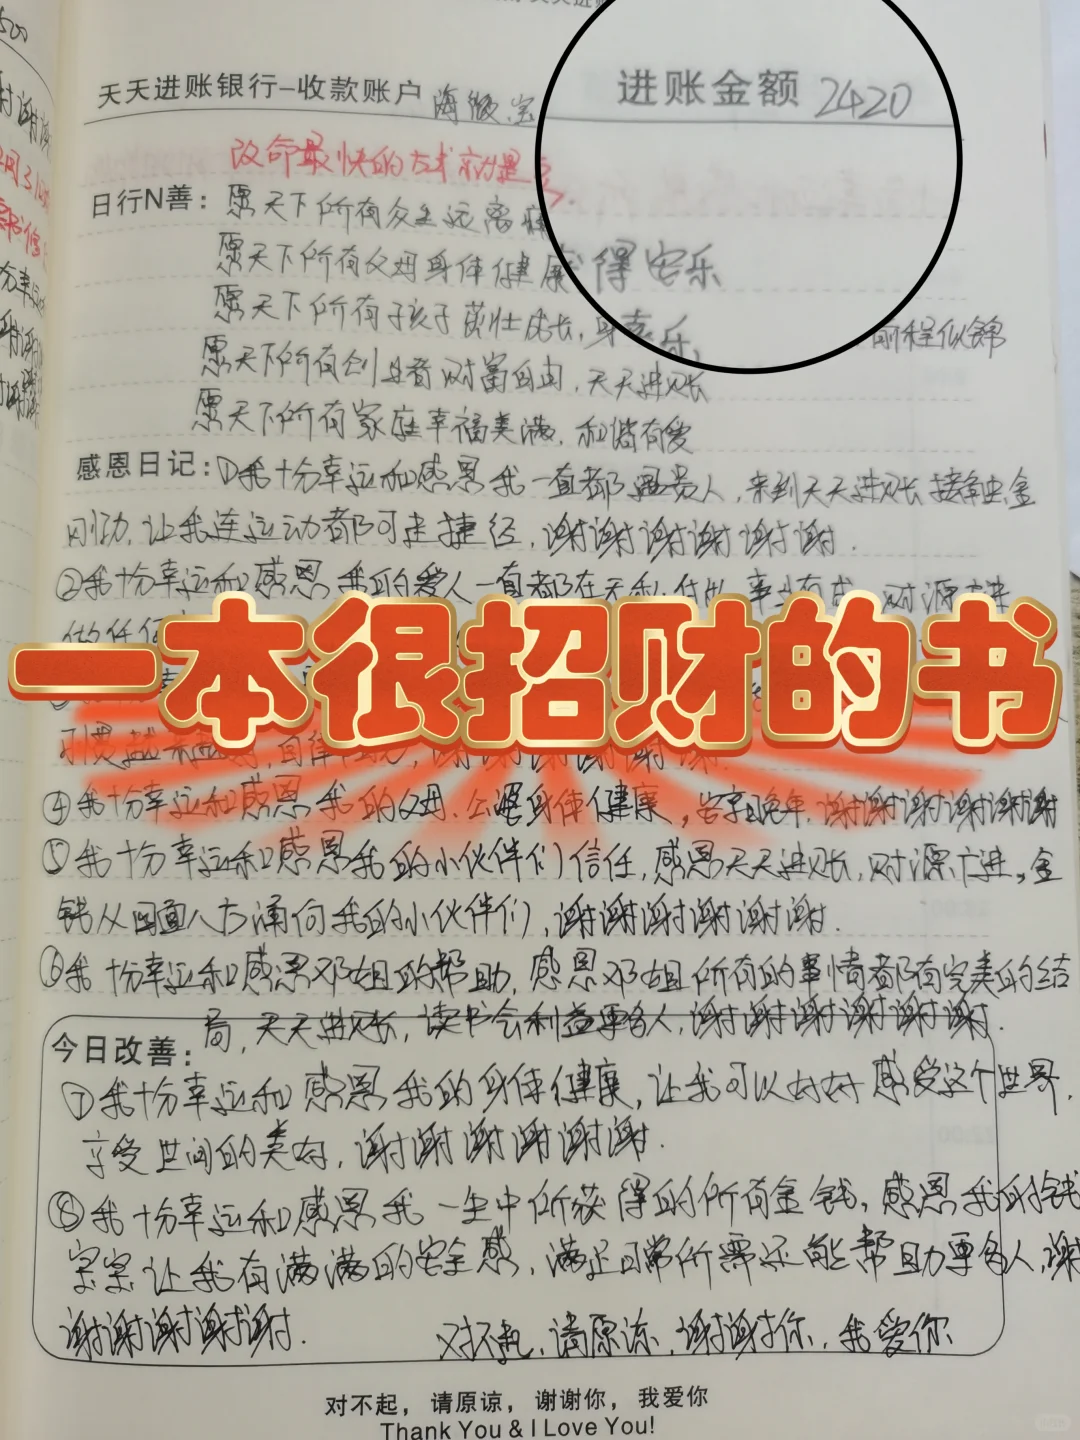 天天进账银行-收款账户 海
进账金额 2420
改命最快的方式就是
日行N善：愿天下所有众生远离
得安乐
愿天下所有父母身体健康
愿天下所有子孩子茁壮成长，身 前程似锦
愿天下所有创业者财富自由，天天进账
愿天下所有家庭幸福美满，和谐有爱
感恩日记：①我十分幸运和感恩我一直都遇贵人，来到天天进账接触金
刚功，让我连运动都可走捷径，谢谢谢谢谢谢。
②我十分幸运和感恩我的爱人一直都在
做任何
一本很招财的书
④我十分幸运和感恩我的父母.公婆身体健康，安享晚年，谢谢谢谢谢谢
⑤我十分幸运和感恩我的小伙伴们信任，感恩天天进账，财源广进，金
钱从四面八方涌向我的小伙伴们，谢谢谢谢谢谢.
⑥我十分幸运和感恩邓姐的帮助，感恩邓姐所有的事情都有完美的结
局，天天进账，读书会利益更多人，谢谢谢谢谢谢谢.
今日改善：
⑦我十分幸运和感恩我的身体健康，让我可以好好感受这个世界，
享受世间的美好，谢谢谢谢谢谢.
⑧我十分幸运和感恩我一生中所获得的所有金钱，感恩我的钱
宝宝让我有满满的安全感，满足日常所需还能帮助更多人，谢
谢谢谢谢谢.
对不起，请原谅，谢谢你，我爱你
对不起，请原谅，谢谢你，我爱你
Thank You & I Love You!